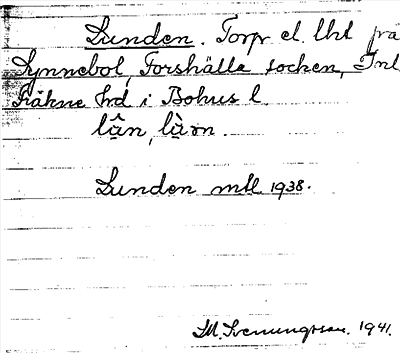 Lunden. Torp el. lht frå
Synnebol, Forshälla socken, Inl.
Fräkne hrd i Bohus l.
lân, làn.
Lunden mtl 1938.
M. Svenungsson. 1941.